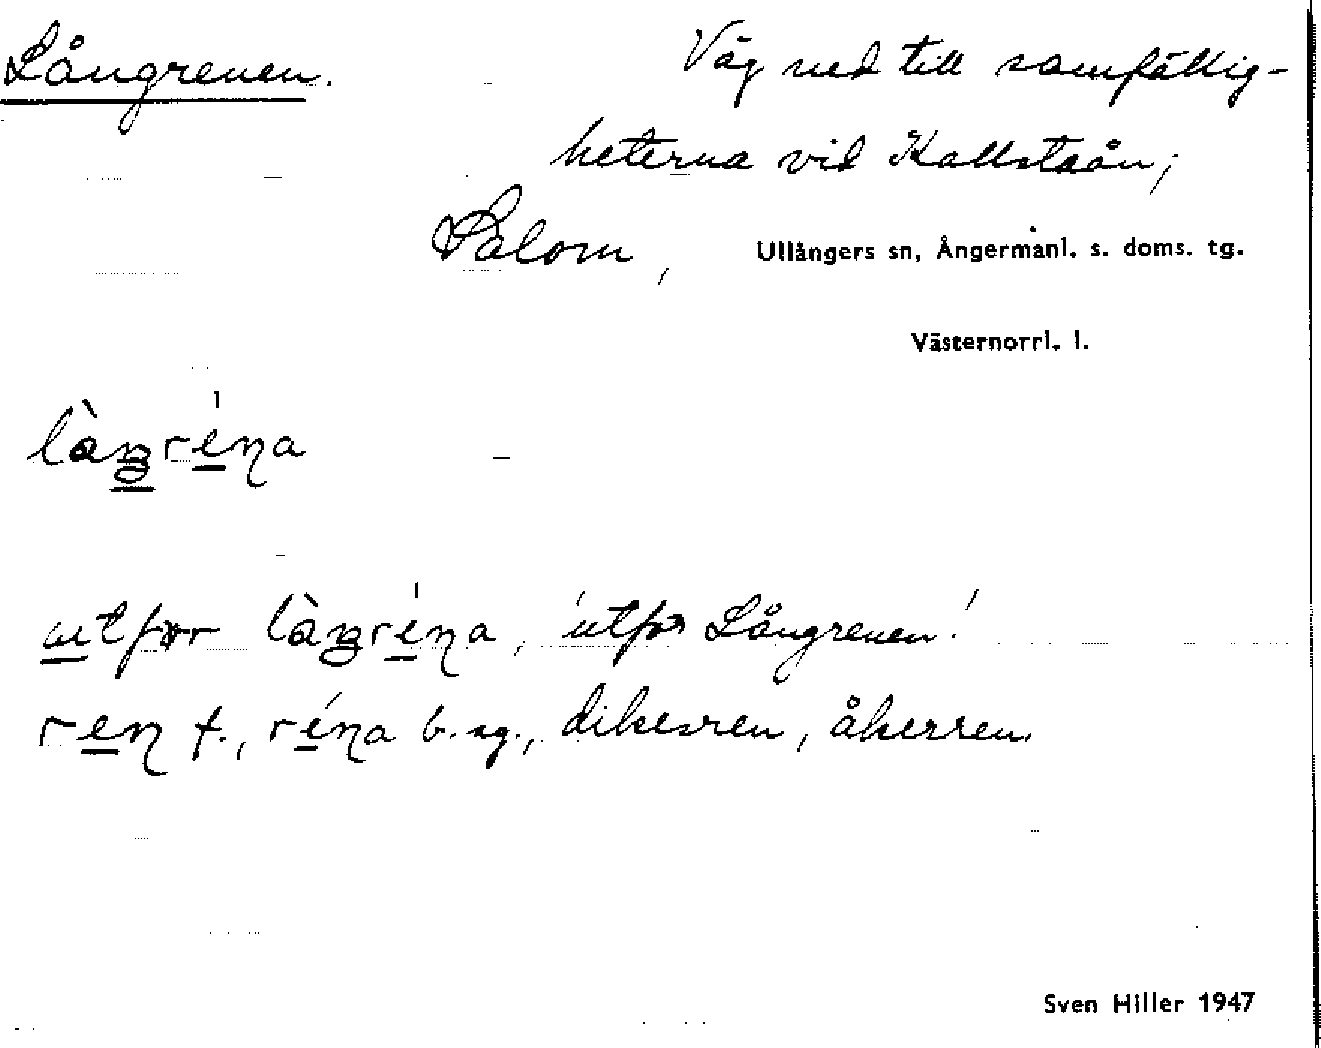 Långrenen.
Väg ned till samfällig-
heterna vid Kallstaån;
Salom, Ullångers sn, Ångermanl. s. doms. tg.
Västernorrl. l.
làŋréṇa
utfør làŋréṇa, 'utför Långrenen'
reṇ f., réṇa b. sg., dikesren, åkerren.
Sven Hiller 1947